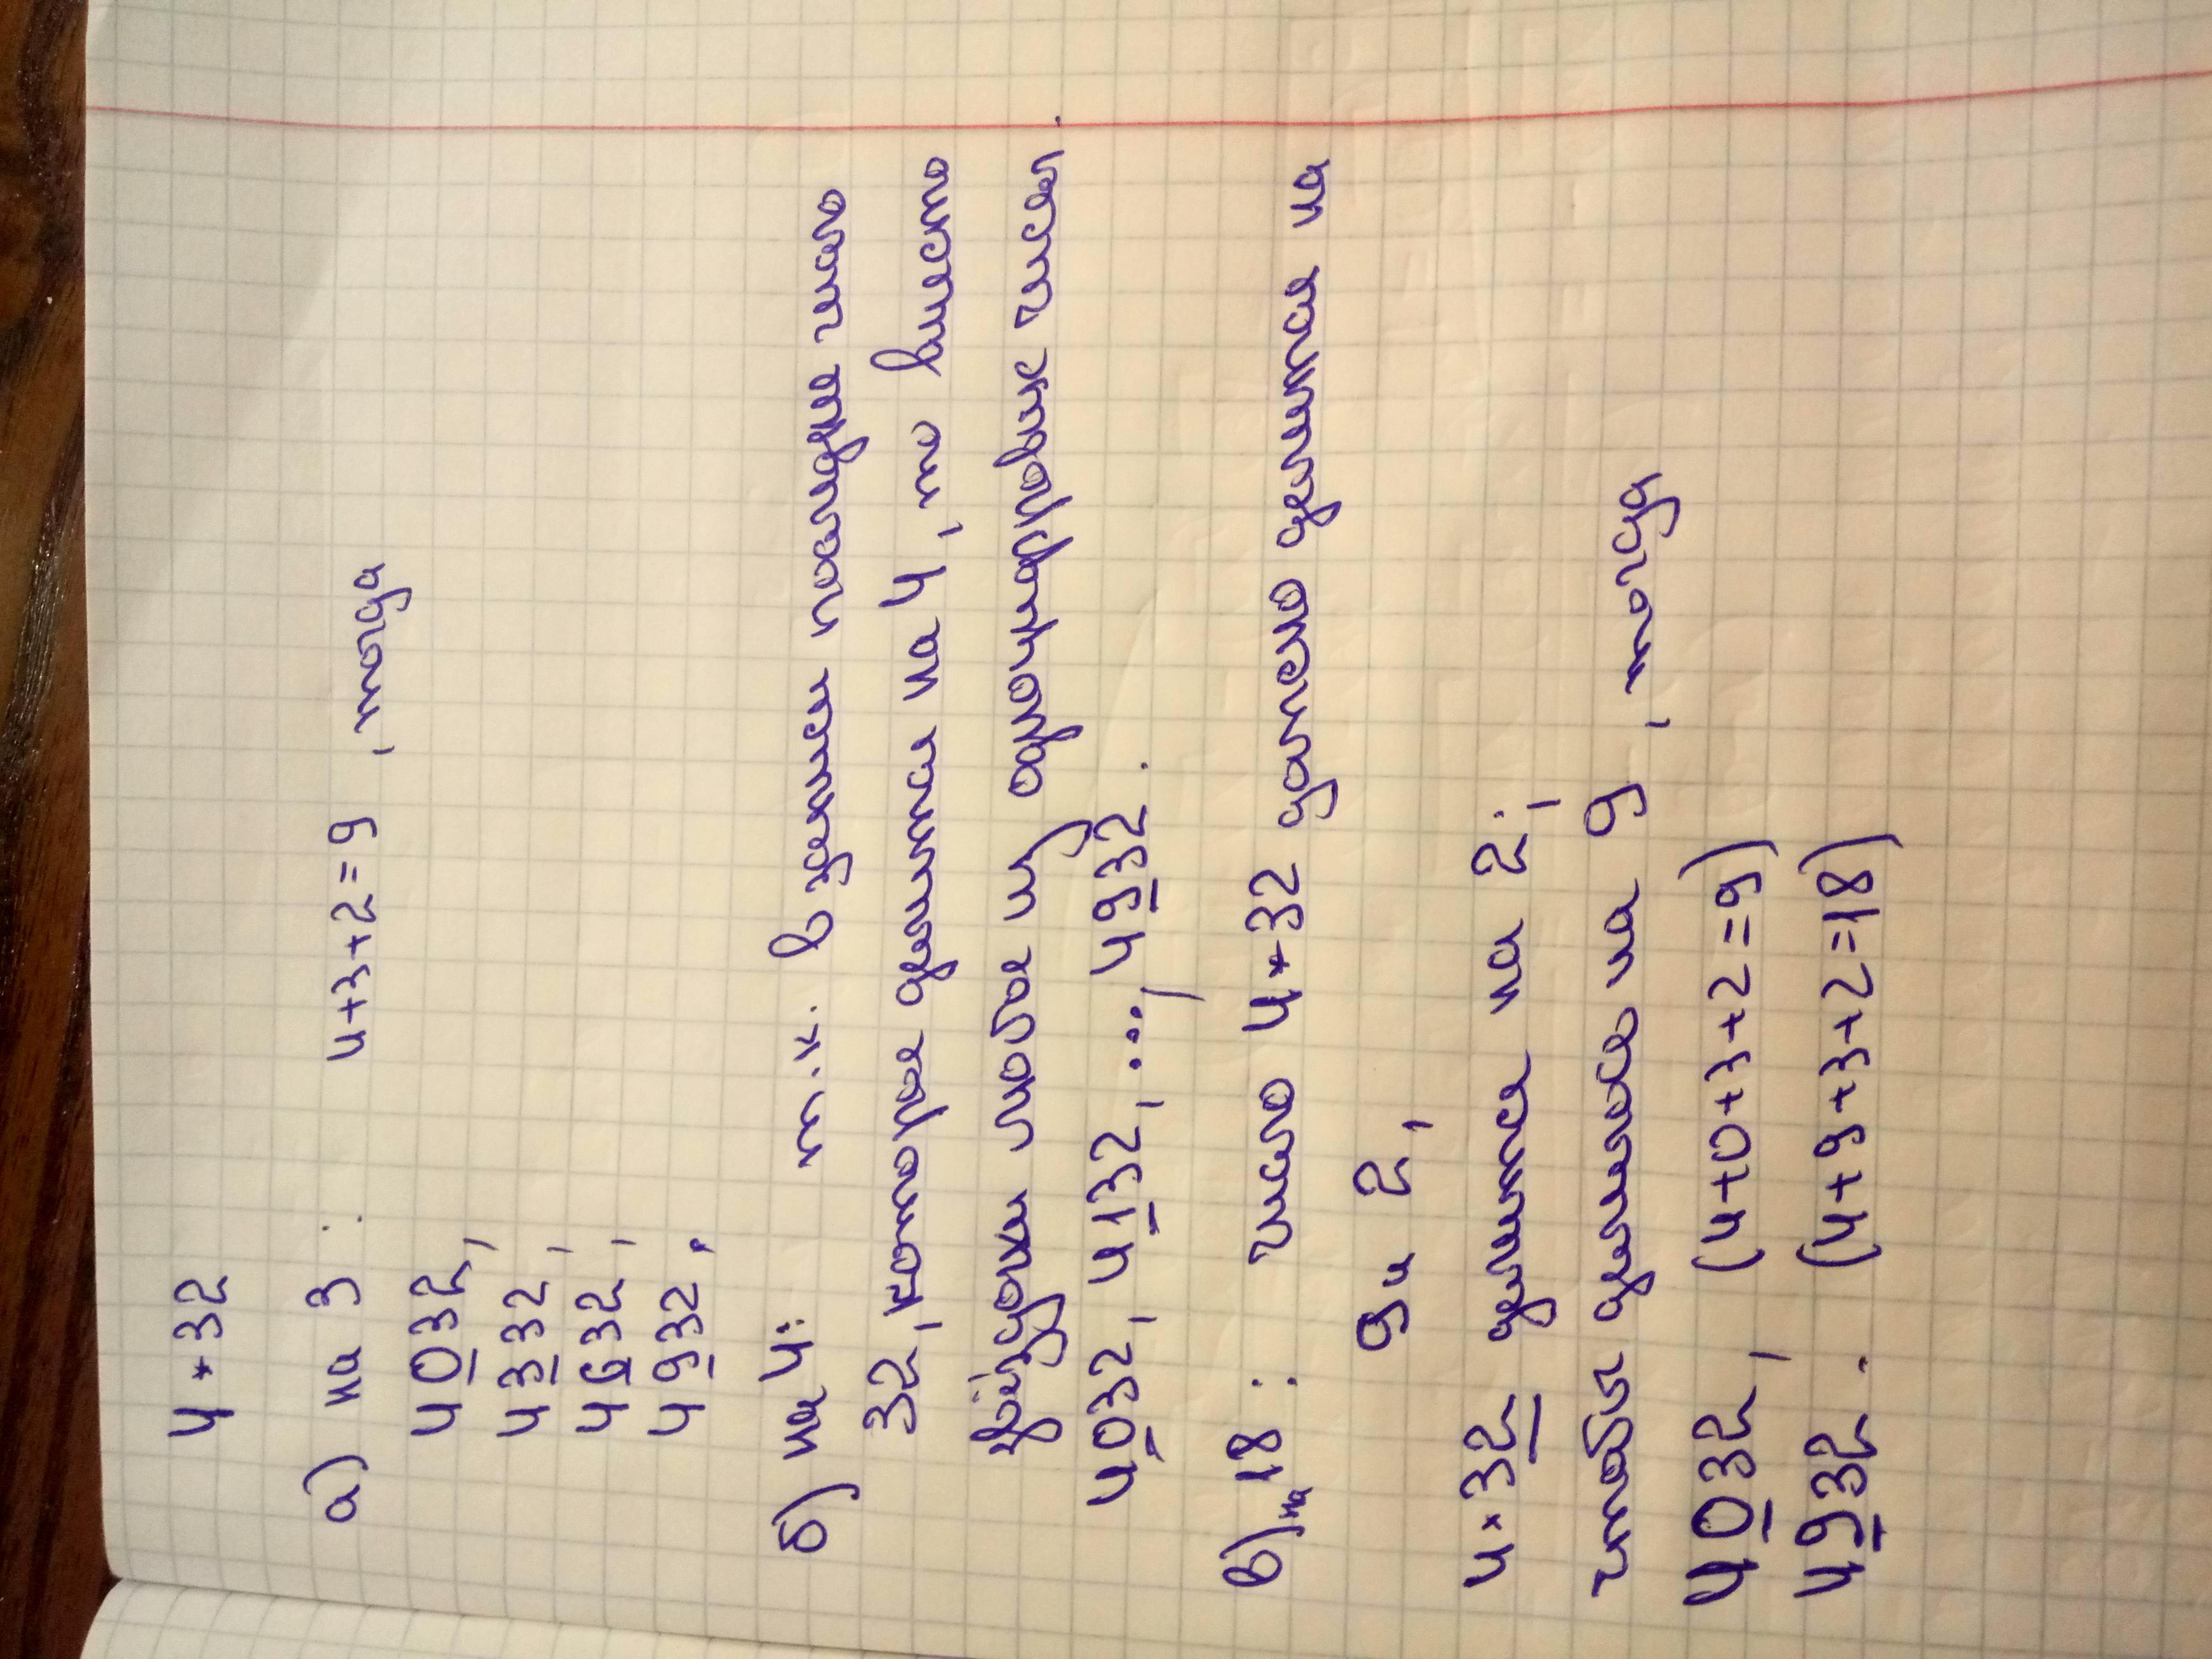 4*32
а) на 3 : 4+3+2=9 , тогда
4032,
4332,
4632,
4932,
б) на 4: т.к. в записи последнее число
32, которое делится на 4, то вместо
звёздочки любое из однозначных чисел.
4032, 4132, ..., 4932.
в) на 18 : число 4*32 должно делиться на
9 и 2,
4*32 делится на 2;
чтобы делилось на 9, тогда
4032, (4+0+3+2=9)
4932. (4+9+3+2=18)